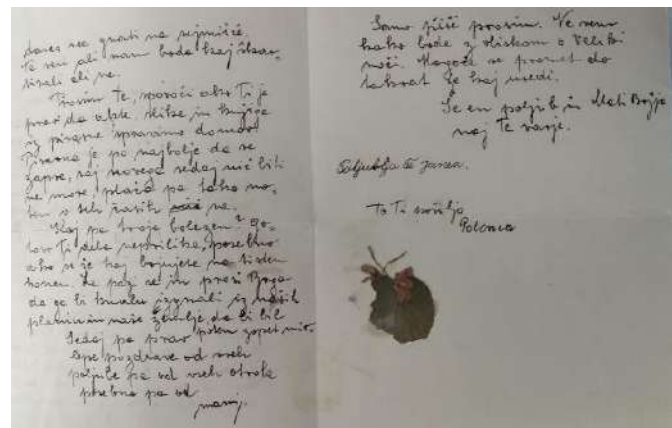 danes vse gnati na sejmišče.
Ne vem ali nam bodo kaj
ali ne.
Prosim Te, sporoči ako Ti je
prav da obleke, slike in knjige
iz pisarne spravimo domov.
Pisarna je po najbolje da se
zapre, saj novega sedaj nič biti
ne more, plača pa tako
v teh časih ne.
Kaj pa tvoja bolezen? Go-
tovo Ti dela neprilike, posebno
ako se je kaj
Le pazi se in prosi Boga
da ga bi kmalu izgnali iz naših
planin in naše zemlje da bi bil
potem zopet mir.
Sedaj pa prav
pozdrave od vseh
poljube pa od vseh otrok
posebno pa od
mamy.
Samo piši prosim. Ne vem
kako bode z obiskom o Veliki
noči. Mogoče se promet do
takrat že kaj uredi.
Še en poljub in Mati Božja
naj Te varje.
Poljublja te
To Ti pošilja
Polonca